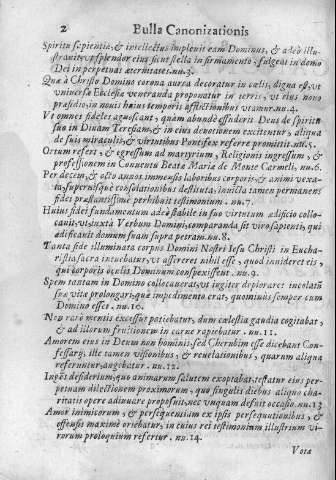 2 Bulla Canonizationis
Spiritu sapientiæ, & intellectus impleuit eam Dominus, & adeò illu-
strauit, vt splendor eius sicut stella in firmamento, fulgeat in domo
Dei in perpetuas æternitates. nu.3.
Quæ à Christo Domino corona aurea decoratur in cælis, digna est, vt
vniuersa Ecclesia veneranda proponatur in terris, vt eius nouo
præsidio, in nouis huius temporis afflictionibus vtamur. nu.4.
Vt omnes fideles agnoscant, quàm abundè effuderit Deus de spiritu
suo in Diuam Teresiam, & in eius deuotionem excitentur, aliqua
de suis miraculis, & virtutibus Pontifex referre promittit. nu.5.
Ortum refert, & egressum ad martyrium, Religionis ingressum, &
professionem in Conuentu Beatæ Mariæ de Monte Carmeli. nu.6.
Per decem, & octo annos immensis laboribus corporis, & animi vexa-
ta, supernisque consolationibus destituta, inuicta tamen permanens
fides præstantissimè perhibuit testimonium. nu.7.
Huius fidei fundamentum adeò stabile in suo virtutum ædificio collo-
cauit, vt iuxtà Verbum Domini, comparanda sit viro sapienti, qui
ædificauit domum suam supra petram. nu.8.
Tanta fide illuminata corpus Domini Nostri Iesu Christi in Eucha-
ristia sacra intuebatur, vt assereret nihil esse, quod inuideret eis,
qui corporis oculis Dominum conspexissent. nu.9.
Spem tantam in Domino collocauerat, vt iugiter deploraret incolatũ
suæ vitæ prolungari, que impedimento erat, quominus semper cum
Domino esset. nu.10.
Non rarò mentis excessus patiebatur, dum cælestia gaudia cogitabat,
& ad illorum fruitionem in carne rapiebatur. nu.11.
Amorem eius in Deum non hominis, sed Cherubim esse dicebant Con-
fessarij, iste tamen visionibus, & reuelationibus, quarum aliqua
referuntur, augebatur. nu.12.
desiderium, quo animarum salutem exoptabat, testatur eius per-
petuam dilectionem proximorum, quo singulis diebus aliquo cha-
ritatis opere adiuuare proposuit, nec vnquam defuit occasio. nu.13
Amor inimicorum, & persequentium ex ipsis persequutionibus, &
offensis maximè oriebatur, in cuius rei testimonium illustrium vi-
rorum proloquium refertur. nu.14.
Vota